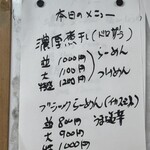 本日のメニュー
濃厚煮干し
並 1000円 らーめん
大 1100円
特盛 1200円 つけめん
クラシックらーめん
並 800円 油そば
大 900円
1000円